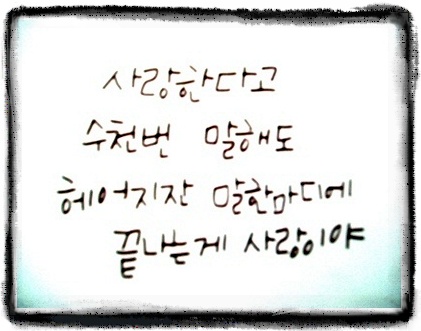 사랑한다고
수천번 말해도
헤어지잔 말한마디에
끝나는게 사랑이야